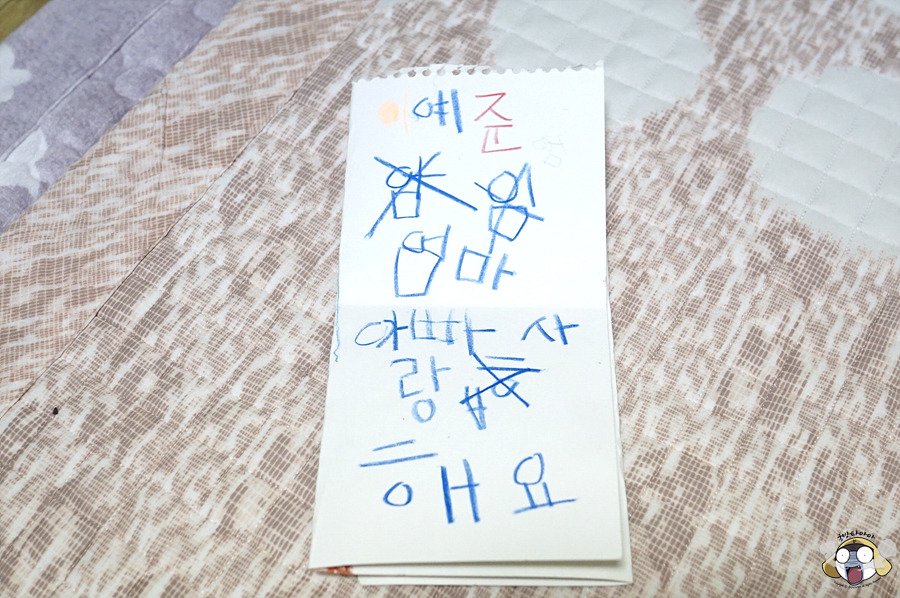 이예준
엄마
아빠 사
랑
해요